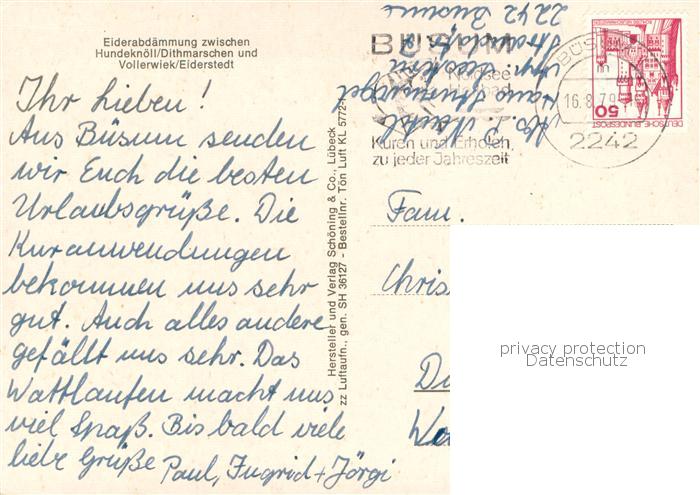 Eiderabdämmung zwischen
Hundeknöll/Dithmarschen und
Vollerwiek/Eiderstedt
Ihr Lieben!
Aus Büsum senden
wir Euch die besten
Urlaubsgrüße. Die
Kuranwendungen
bekommen uns sehr
gut. Auch alles andere
gefällt uns sehr. Das
Wattlaufen macht uns
viel Spaß. Bis bald viele
liebe Grüße Paul, Ingrid + Jörgi
Hersteller und Verlag Schöning & Co., Lübeck
zz Luftaufn., gen. SH 36127 - Bestellnr. Tön Luft KL 5772-1
2242 Büsum
BÜSUM
Nordsee
Heilbad
Kuren und Erholen,
zu jeder Jahreszeit
BÜS
16.8.79
2242
50
DEUTSCHE BUNDESPOST
Fam.
Chris
privacy protection
Datenschutz